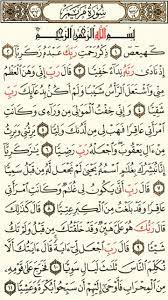 سُورَةُ مَرْيَمَ
بِسْمِ ٱللَّهِ ٱلرَّحْمَٰنِ ٱلرَّحِيمِ
كٓهيعٓصٓ ١ ذِكْرُ رَحْمَتِ رَبِّكَ عَبْدَهُۥ زَكَرِيَّآ ٢
إِذْ نَادَىٰ رَبَّهُۥ نِدَآءً خَفِيًّا ٣ قَالَ رَبِّ إِنِّى وَهَنَ ٱلْعَظْمُ
مِنِّى وَٱشْتَعَلَ ٱلرَّأْسُ شَيْبًا وَلَمْ أَكُنۢ بِدُعَآئِكَ رَبِّ
شَقِيًّا ٤ وَإِنِّى خِفْتُ ٱلْمَوَٰلِىَ مِن وَرَآءِى وَكَانَتِ
ٱمْرَأَتِى عَاقِرًا فَهَبْ لِى مِن لَّدُنكَ وَلِيًّا ٥ يَرِثُنِى وَيَرِثُ
مِنْ ءَالِ يَعْقُوبَ وَٱجْعَلْهُ رَبِّ رَضِيًّا ٦ يَٰزَكَرِيَّآ إِنَّا نُبَشِّرُكَ
بِغُلَٰمٍ ٱسْمُهُۥ يَحْيَىٰ لَمْ نَجْعَل لَّهُۥ مِن قَبْلُ سَمِيًّا ٧ قَالَ
رَبِّ أَنَّىٰ يَكُونُ لِى غُلَٰمٌ وَكَانَتِ ٱمْرَأَتِى
عَاقِرًا وَقَدْ بَلَغْتُ مِنَ ٱلْكِبَرِ عِتِيًّا ٨ قَالَ كَذَٰلِكَ
قَالَ رَبُّكَ هُوَ عَلَىَّ هَيِّنٌ وَقَدْ خَلَقْتُكَ مِن قَبْلُ وَلَمْ تَكُ
شَيْـًٔا ٩ قَالَ رَبِّ ٱجْعَل لِّىٓ ءَايَةً قَالَ ءَايَتُكَ أَلَّا
تُكَلِّمَ ٱلنَّاسَ ثَلَٰثَ لَيَالٍ سَوِيًّا ١٠ فَخَرَجَ عَلَىٰ قَوْمِهِۦ
مِنَ ٱلْمِحْرَابِ فَأَوْحَىٰٓ إِلَيْهِمْ أَن سَبِّحُوا۟ بُكْرَةً وَعَشِيًّا ١١